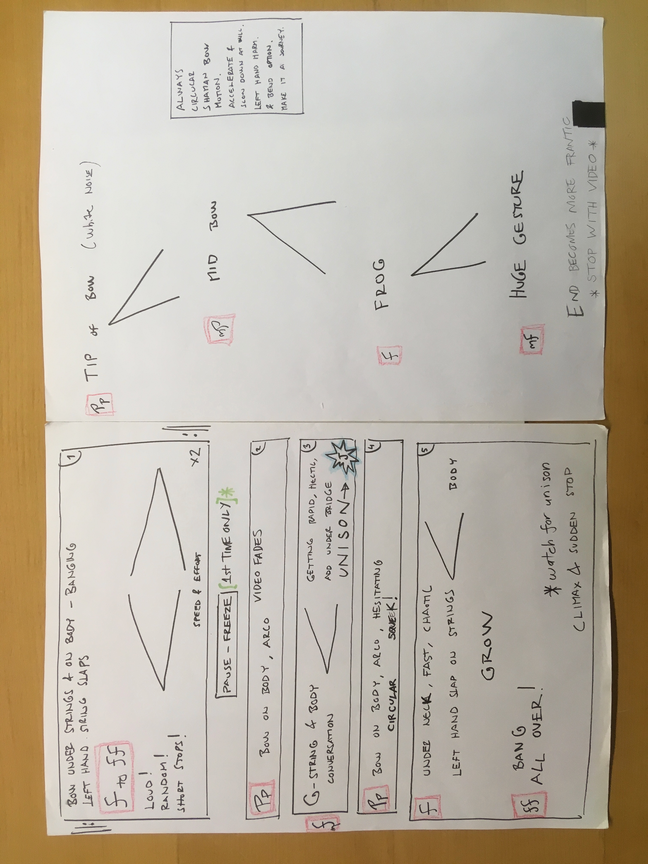 1
BOW UNDER STRINGS & ON BODY - BANGING
LEFT HAND STRING SLAPS
f to ff
LOUD!
RANDOM!
SHORT STOPS!
SPEED & EFFORT
x2
PAUSE - FREEZE [1st TIME ONLY]*
2
Pp BOW ON BODY, ARCO VIDEO FADES
3
mf
G-STRING & BODY
CONVERSATION
GETTING RAPID, HECTIC,
ADD UNDER BRIDGE
UNISON →
4
Pp BOW ON BODY, ARCO, HESITATING
CIRCULAR SQUEEK!
5
f UNDER NECK, FAST, CHAOTIC
LEFT HAND SLAP ON STRINGS
BODY
GROW
ff BANG
ALL OVER!
*watch for unison
CLIMAX & SUDDEN STOP
Pp TIP OF BOW (WHITE NOISE)
mp MID BOW
f FROG
mf HUGE GESTURE
ALWAYS
CIRCULAR
SHAMAN BOW
MOTION.
ACCELERATE &
SLOW DOWN AT WILL.
LEFT HAND HARM.
& BEND OPTION.
MAKE IT A JOURNEY.
END BECOMES MORE FRANTIC
* STOP WITH VIDEO *